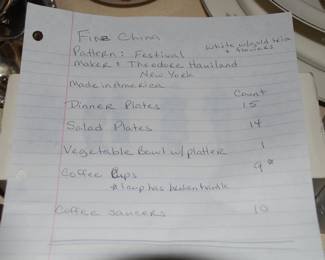 Fine China
Pattern: Festival White w/gold trim
& flowers
Maker: Theodore Haviland
New York
Made in America
Count
Dinner Plates 15
Salad Plates 14
Vegetable Bowl w/platter 1
Coffee Cups 9*
*1 cup has broken handle
Coffee saucers 10